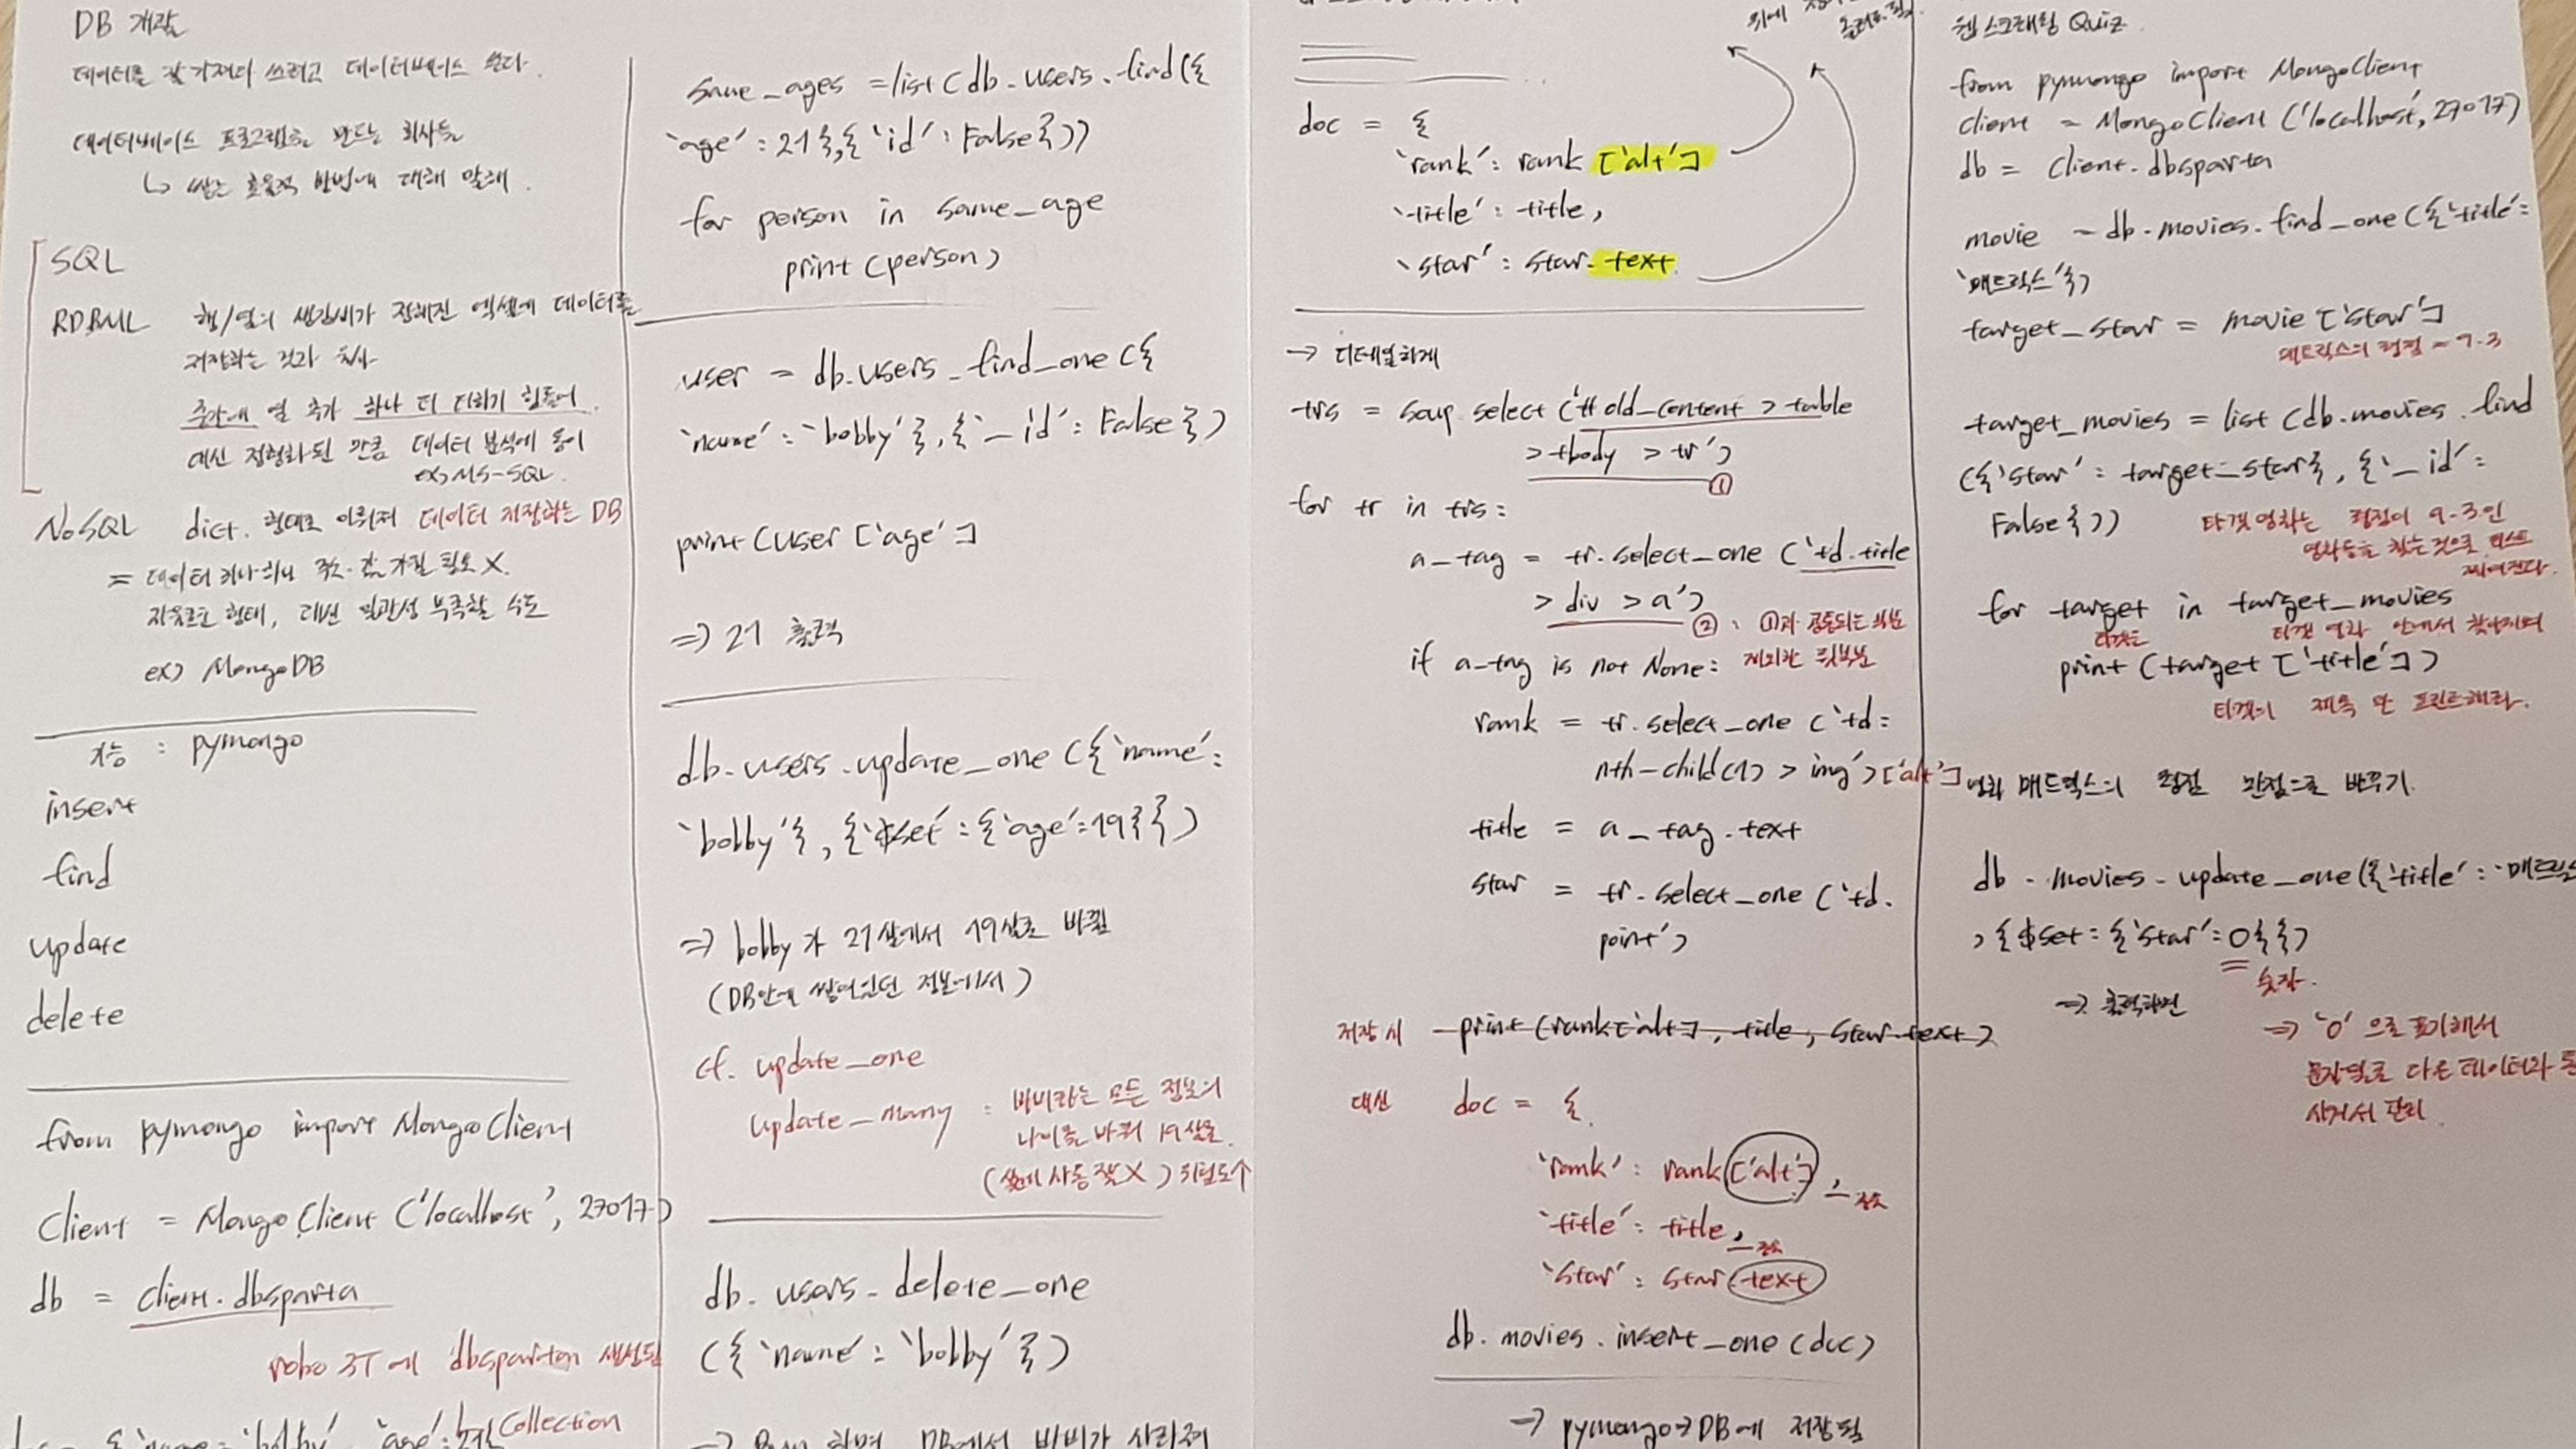 DB 개발
데이터를 잘 가져다 쓰려고 데이터베이스 쓴다.
데이터베이스 프로그램을 만드는 회사들
↳ 쌓는 효율적 방법에 대해 말해.
SQL
RDBML 행/열의 생김새가 정해진 엑셀에 데이터를
저장하는 것과 유사
중간에 열 추가 하나 더 더하기 힘들어.
대신 정형화된 만큼 데이터 분석에 용이
ex) MS-SQL.
NoSQL dict. 형태로 이뤄져 데이터 저장하는 DB
= 데이터 하나하나 같은 값 가질 필요 X.
자유로운 형태, 대신 일관성 부족할 수도
ex) MongoDB
기능 : pymongo
insert
find
update
delete
from pymongo import MongoClient
Client = MongoClient ('localhost', 27017)
db = client.dbsparta
robo 3T에 dbsparta 생성됨
{'name': 'bobby', 'age': 21}
Collection
same_ages = list (db.users.find({
'age': 21},{'id': False}))
for person in same_age
print (person)
user = db.users_find_one ({
'name': 'bobby'},{'_id': False})
print (user ['age']
=> 21 출력
db.users.update_one ({'name':
'bobby'},{'$set': {'age':19}})
=> bobby가 21살에서 19살로 바뀜
(DB안에 쌓여있던 정보에서)
cf. update_one
update_many : 바비라는 모든 정보의
나이를 바꿔 19살로.
db.users_delete_one
({'name': 'bobby'})
=> Run 하면 DB에서 바비가 사라져
위에
doc = {
'rank': rank ['alt']
'title': title,
'star': star.text
→ 디테일하게
trs = soup.select ('#old_content > table
> tbody > tr')
①
for tr in trs:
a_tag = tr.select_one ('td.title
> div > a')
② : ①과 공통되는 부분
제외한 뒷부분
if a_tag is not None:
rank = tr.select_one ('td:
nth-child(1) > img')['alt']
title = a_tag.text
star = tr.select_one ('td.
point')
저장 시 print (rank['alt'], title, star.text)
대신 doc = {
'rank': rank['alt'],
'title': title,
'star': star.text
db.movies.insert_one (doc)
→ pymongo→DB에 저장됨
웹스크래핑 Quiz
from pymongo import MongoClient
client = MongoClient ('localhost', 27017)
db = client.dbsparta
movie = db.movies.find_one ({'title':
'매트릭스'})
target_star = movie ['star']
매트릭스의 평점 = 9.3
target_movies = list (db.movies.find
({'star': target_star}, {'_id':
False}))
타겟영화는 평점이 9.3인
영화들을 찾는 것으로 리스트
for target in target_movies
타겟은
타겟 영화 안에서 찾아지며
print (target ['title'])
타겟의 제목만 프린트해라.
영화 매트릭스의 평점 0점으로 바꾸기.
db.movies.update_one({'title': '매트릭스
}, {$set: {'star':0}})
숫자.
=> 출력하면
=> '0' 으로 표기해서
문자열로 다른 데이터와 동
시켜서 관리